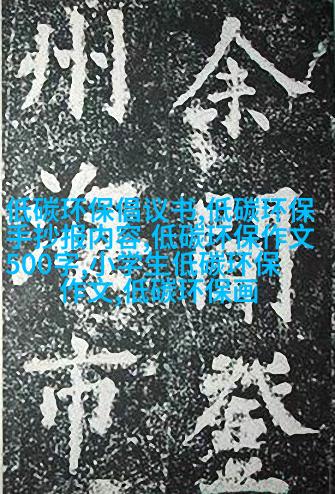 低碳环保倡议书,低碳环保
手抄报内容,低碳环保作文
500字,小学生低碳环保
作文,低碳环保画
余登
州市